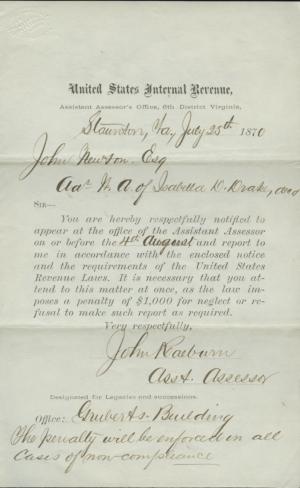 United States Internal Revenue,
Assistant Assessor's Office, 6th District Virginia,
Staunton, Va, July 25th 1870
John Newton Esq
Adr. W. A. of Isabella D. Drake, decd
SIR—
You are hereby respectfully notified to
appear at the office of the Assistant Assessor
on or before the 4th August and report to
me in accordance with the enclosed notice
and the requirements of the United States
Revenue Laws. It is necessary that you at-
tend to this matter at once, as the law im-
poses a penalty of $1,000 for neglect or re-
fusal to make such report as required.
Very respectfully,
John Raeburn
Asst. Assessor
Designated for Legacies and successions.
Office: Building
The penalty will be enforced in all
Cases of non-compliance